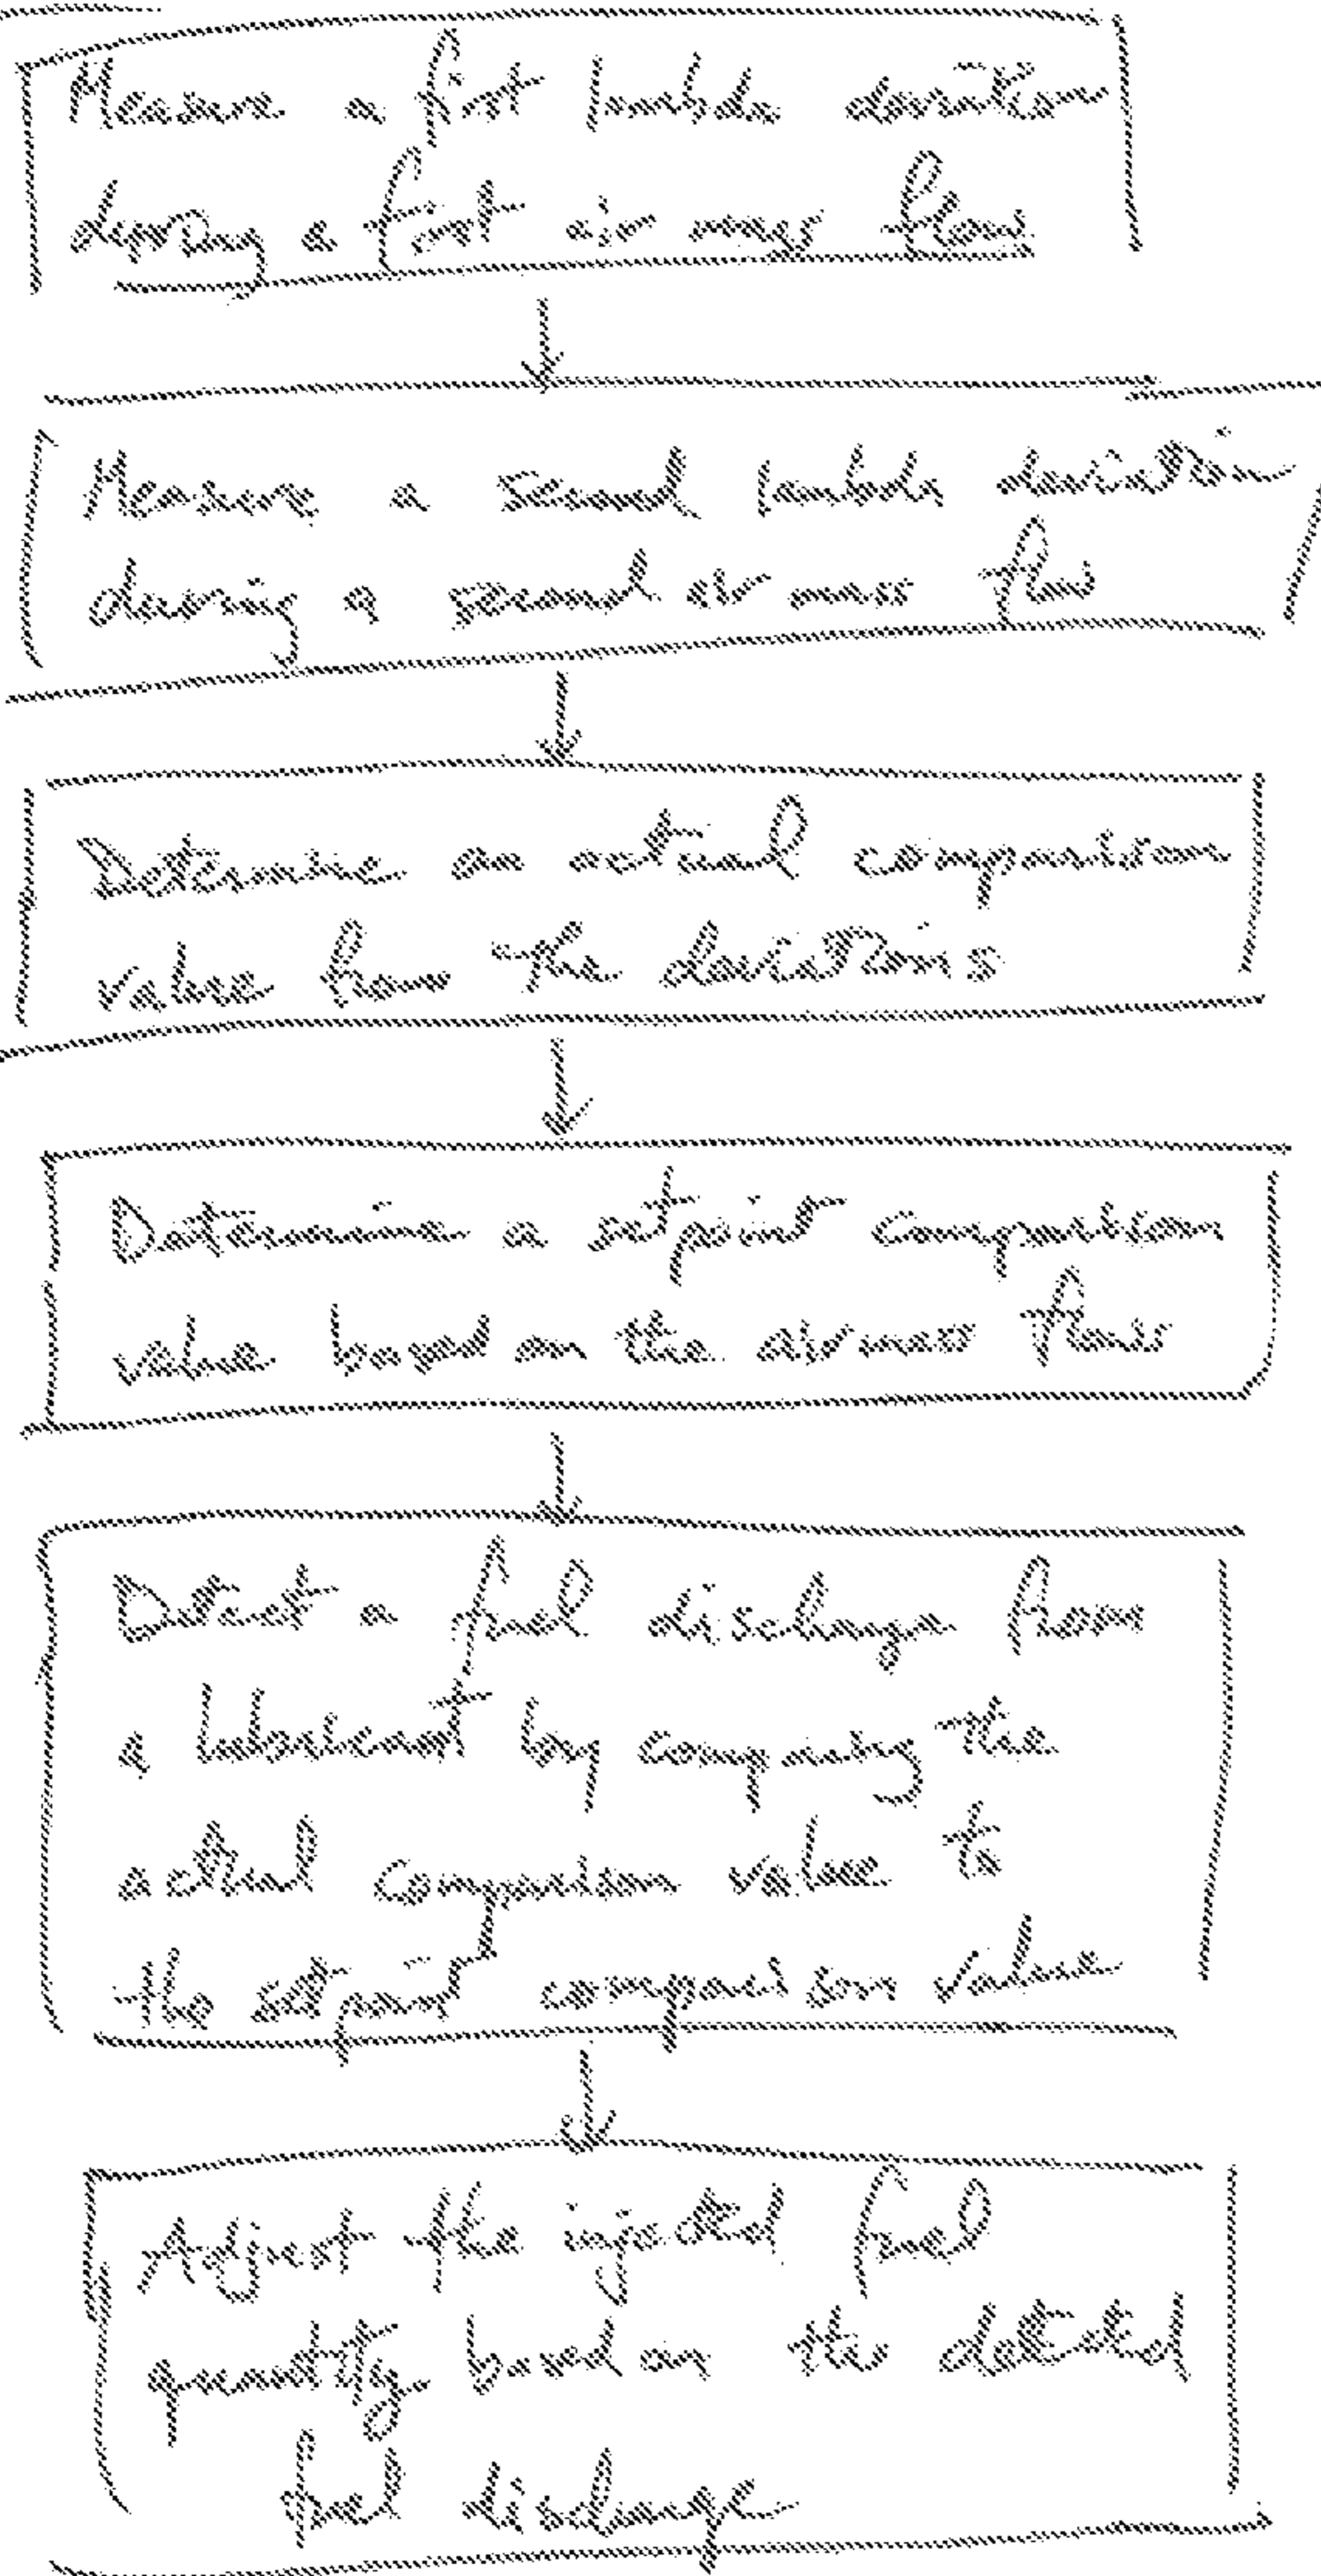 Measure a first lambda deviation
during a first air mass flow
Measure a second lambda deviation
during a second air mass flow
Determine an actual comparison
value from the deviations
Determine a setpoint comparison
value based on the air mass flows
Detect a fuel discharge from
a lubricant by comparing the
actual comparison value to
the setpoint comparison value
Adjust the injected fuel
quantity based on the detected
fuel discharge